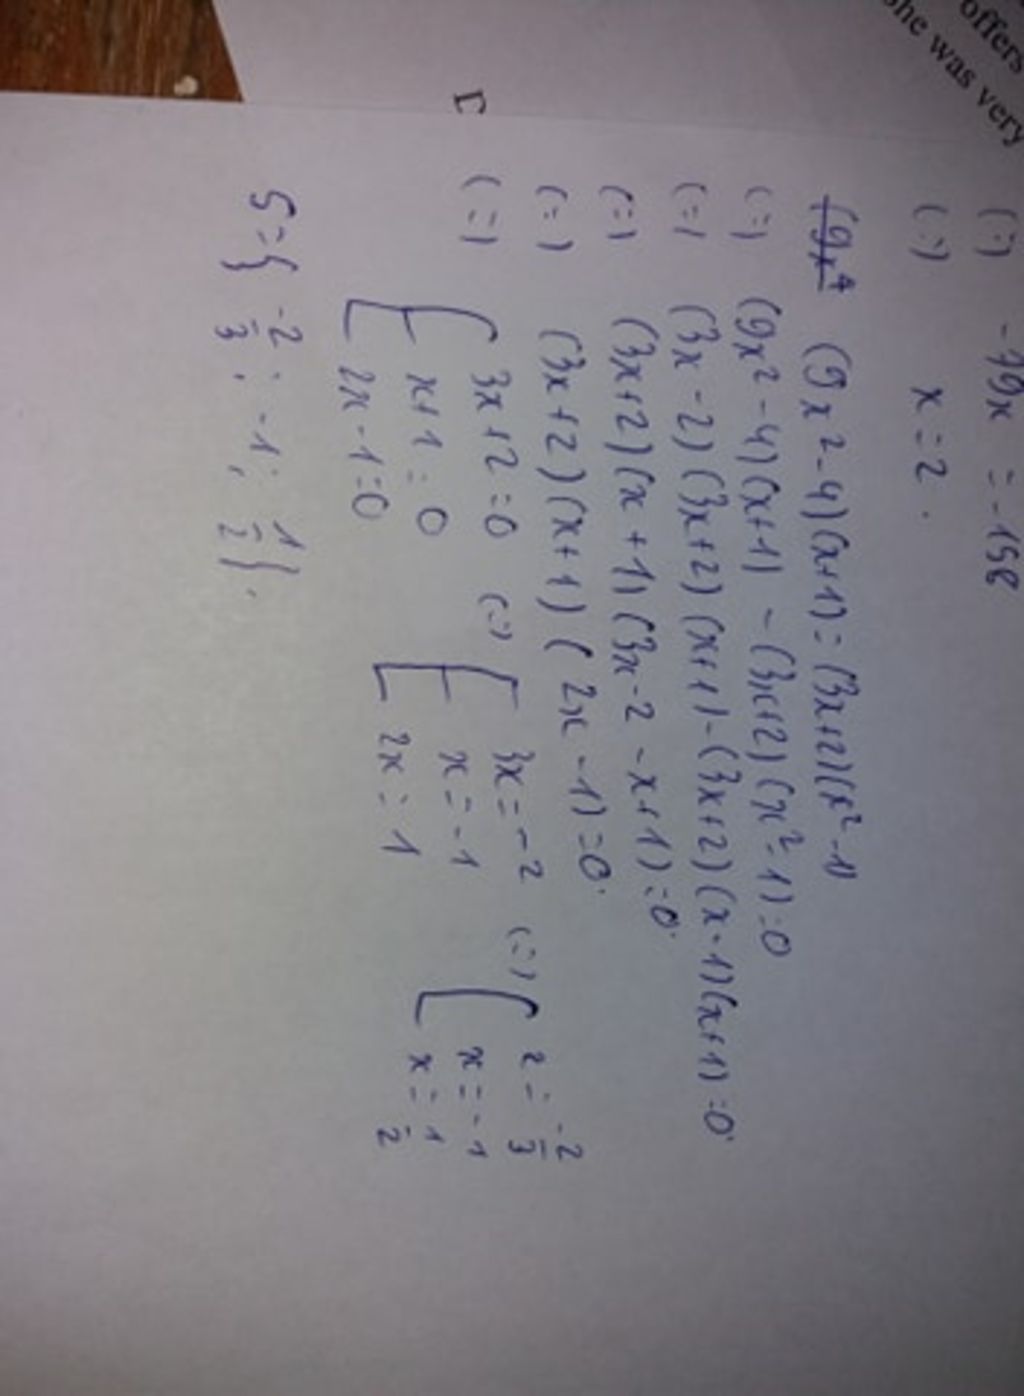 offers
she was very
(=) -79x = -158
(=) x = 2.
(9x⁴ (9x²-4)(x+1) = (3x+2)(x²-1)
(=) (9x²-4)(x+1) - (3x+2)(x²-1)=0
(=) (3x-2)(3x+2)(x+1)-(3x+2)(x-1)(x+1)=0.
(=) (3x+2)(x+1)(3x-2-x+1)=0.
(=) (3x+2)(x+1)(2x-1)=0.
(=) [ 3x+2=0 (=) [ 3x=-2 (=) [ x = -2/3
x+1=0 x=-1 x=-1
2x-1=0 2x=1 x=1/2
S={ -2/3; -1; 1/2 }.